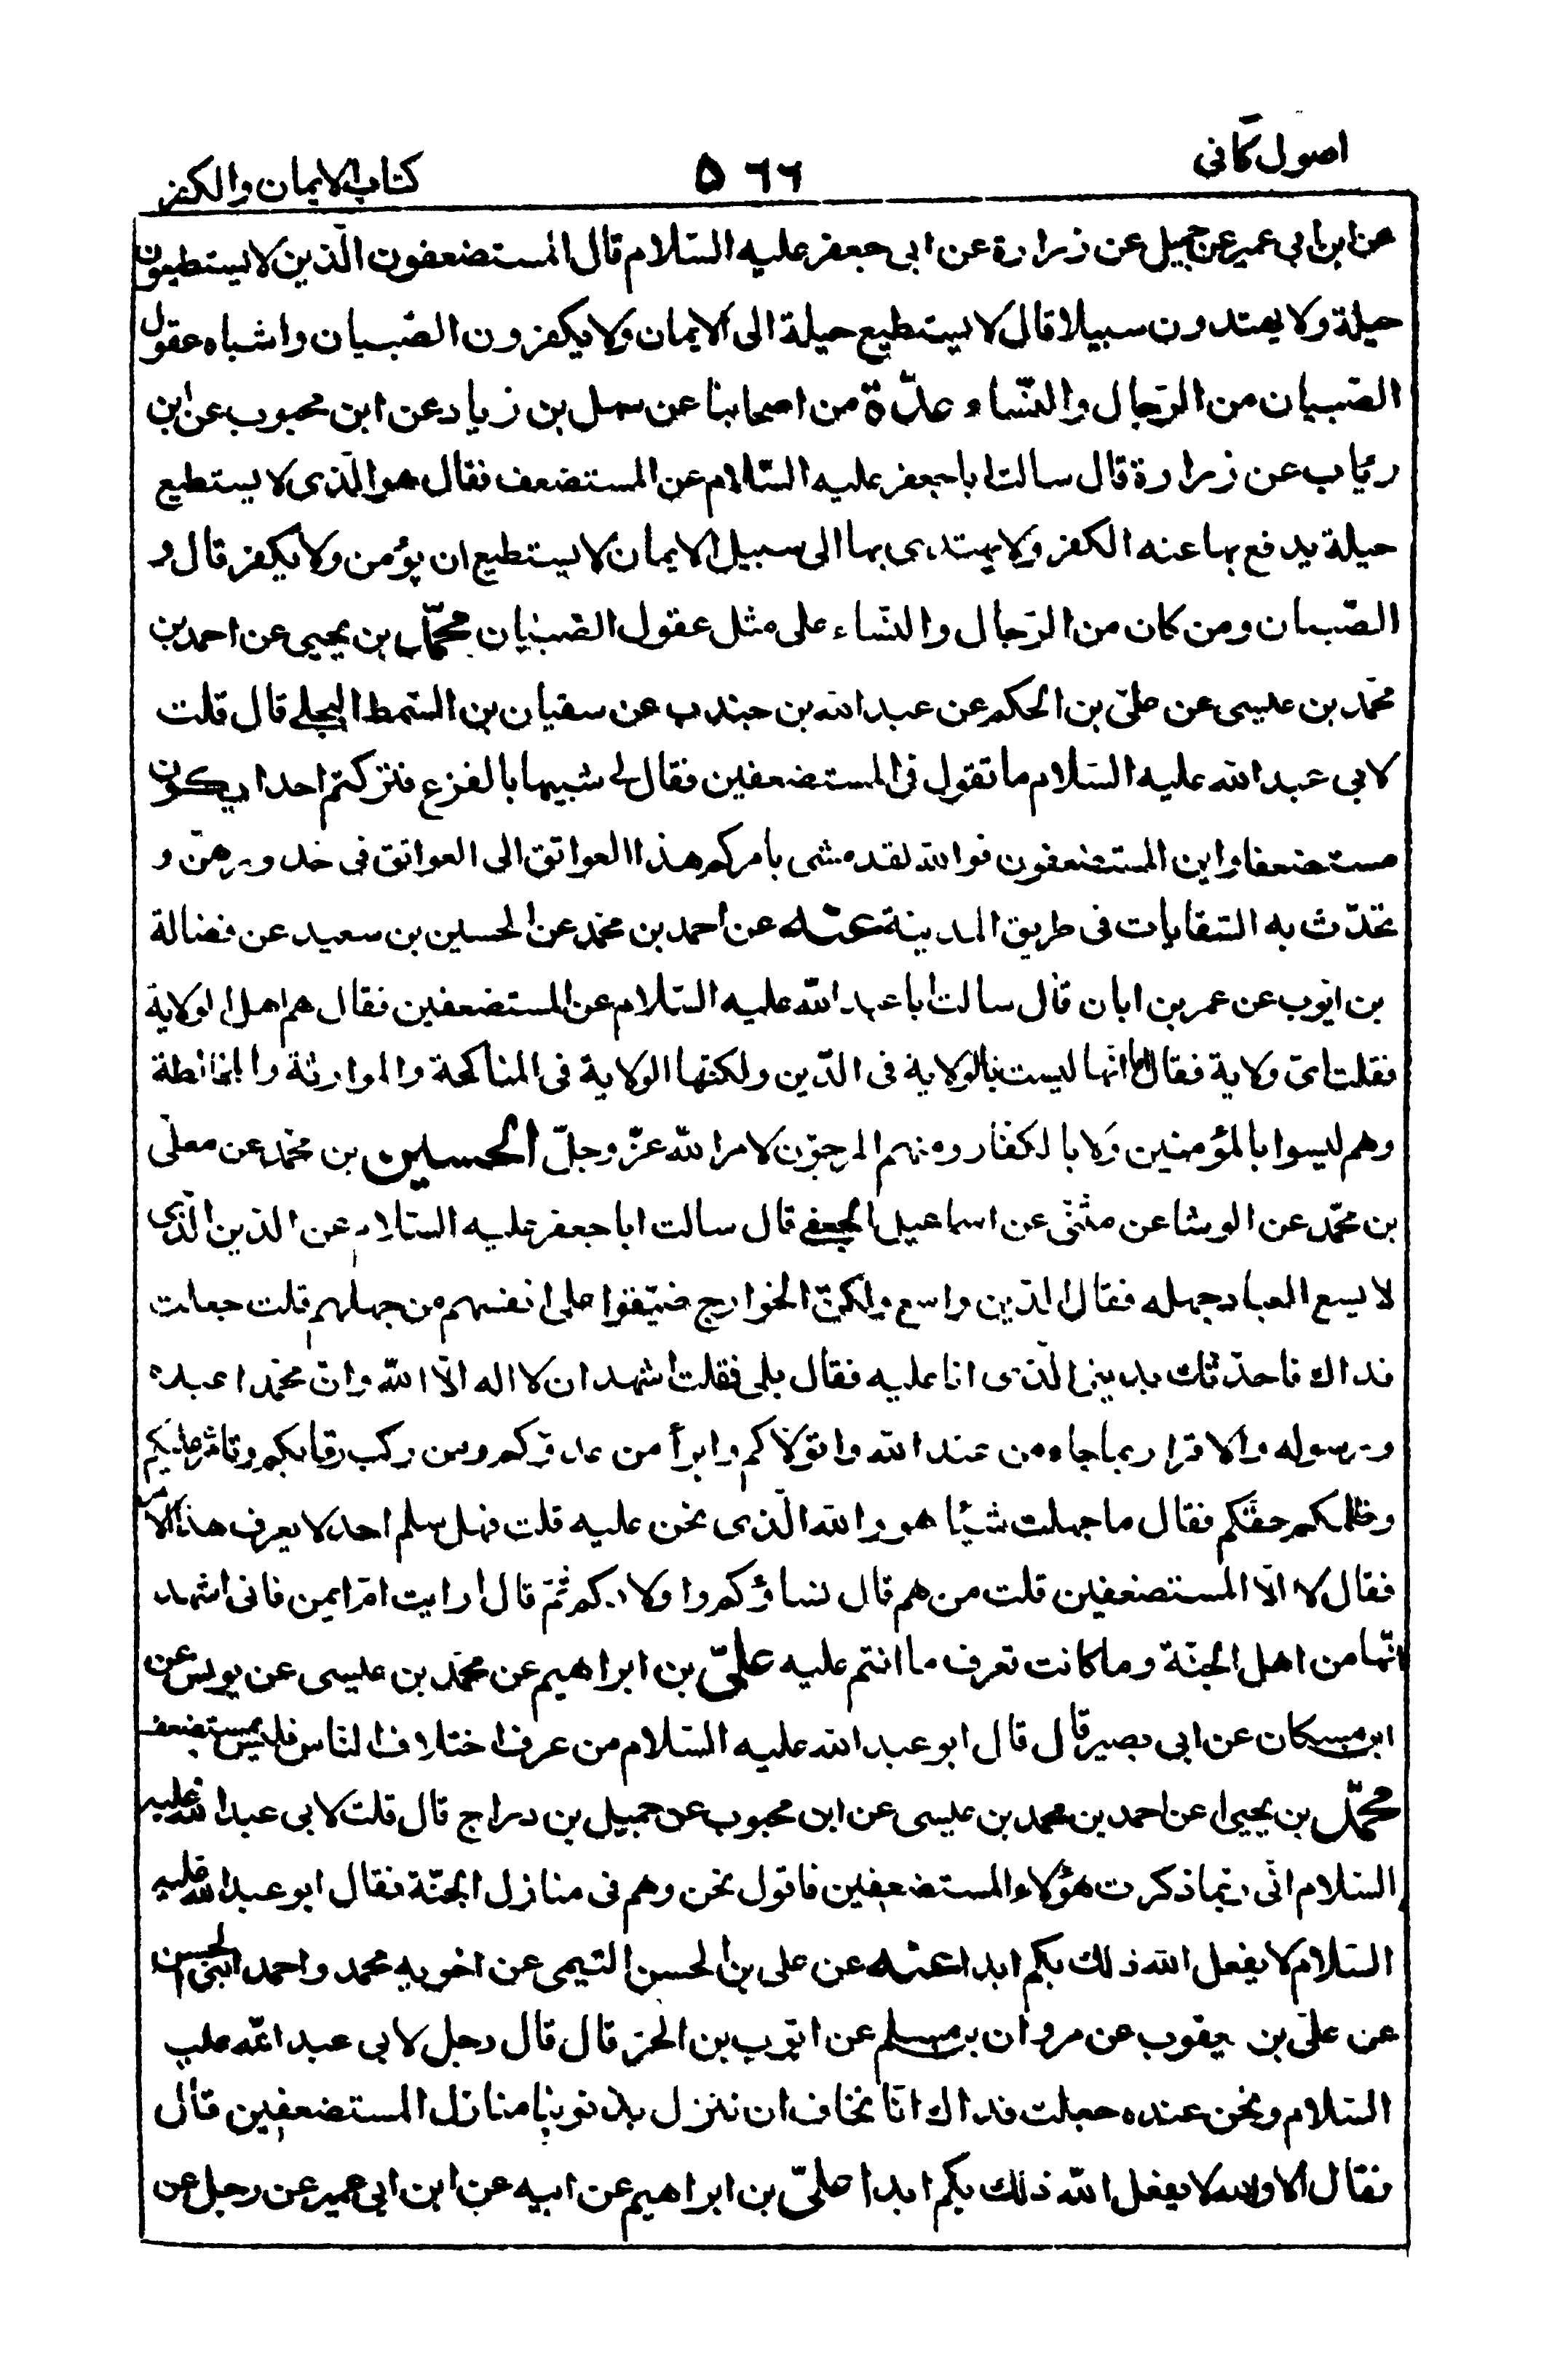 اصول كافى
٥٦٦
كتاب الايمان والكفر
عن ابن ابى عمير عن جميل عن زرارة عن ابى جعفر عليه السّلام قال المستضعفون الّذين لا يستطيعون
حيلة ولا يهتدون سبيلا قال لا يستطيع حيلة الى الايمان ولا يكفرون الصّبيان واشباه عقول
الصّبيان من الرّجال والنّساء عدّة من اصحابنا عن سهل بن زياد عن ابن محبوب عن ابن
رئاب عن زرارة قال سالت ابا جعفر عليه السّلام عن المستضعف فقال هو الّذى لا يستطيع
حيلة يدفع بها عنه الكفر ولا يهتدى بها الى سبيل الايمان لا يستطيع ان يؤمن ولا يكفر قال و
الصّبيان ومن كان من الرّجال والنّساء على مثل عقول الصّبيان محمّد بن يحيى عن احمد بن
محمّد بن عيسى عن علىّ بن الحكم عن عبد الله بن جندب عن سفيان بن السّمط البجلى قال قلت
لابى عبد الله عليه السّلام ما تقول فى المستضعفين فقال لى شبيها بالفزع فتركتم احدا يكون
مستضعفا واين المستضعفون فوالله لقد مشى بامركم هذا العواتق الى العواتق فى خدورهنّ و
تحدّث به السّقايات فى طريق المدينة عنه عن احمد بن محمّد عن الحسين بن سعيد عن فضالة
بن ايّوب عن عمر بن ابان قال سالت ابا عبد الله عليه السّلام عن المستضعفين فقال هم اهل الولاية
فقلت اىّ ولاية فقال اما انّها ليست بالولاية فى الدّين ولكنّها الولاية فى المناكحة والموارثة والمخالطة
وهم ليسوا بالمؤمنين ولا بالكفّار ومنهم المرجوّن لامر الله عزّ وجلّ الحسين بن محمّد عن معلّى
بن محمّد عن الوشا عن مثنّى عن اسماعيل الجعفى قال سالت ابا جعفر عليه السّلام عن الدّين الّذى
لا يسع العباد جهله فقال الدّين واسع ولكنّ الخوارج ضيّقوا على انفسهم من جهلهم قلت جعلت
فداك فاحدّثك بدينى الّذى انا عليه فقال بلى فقلت اشهد ان لا اله الّا الله وانّ محمّدا عبده
ورسوله والاقرار بما جاء من عند الله واتولّاكم وابرأ من عدوّكم ومن ركب رقابكم وتامّر عليكم
وظلمكم حقّكم فقال ما جهلت شيئا هو والله الّذى نحن عليه قلت فهل سلم احد لا يعرف هذا الامر
فقال لا الّا المستضعفين قلت من هم قال نساؤكم واولادكم ثمّ قال ارايت امّ ايمن فانى اشهد
انّها من اهل الجنّة وما كانت تعرف ما انتم عليه علىّ بن ابراهيم عن محمّد بن عيسى عن يونس عن
ابن مسكان عن ابى بصير قال قال ابو عبد الله عليه السّلام من عرف اختلاف النّاس فليس بمستضعف
محمّد بن يحيى عن احمد بن محمد بن عيسى عن ابن محبوب عن جميل بن دراج قال قلت لابى عبد الله عليه
السّلام انّى ربّما ذكرت هؤلاء المستضعفين فاقول نحن وهم فى منازل الجنّة فقال ابو عبد الله عليه
السّلام لا يفعل الله ذلك بكم ابدا عنه عن على بن الحسن التيمى عن اخويه محمد واحمد ابنى الحسن
عن علىّ بن يعقوب عن مروان بن مسلم عن ايّوب بن الحرّ قال قال رجل لابى عبد الله عليه
السّلام ونحن عنده جعلت فداك انّا نخاف ان ننزل بذنوبنا منازل المستضعفين قال
فقال لا والله لا يفعل الله ذلك بكم ابدا علىّ بن ابراهيم عن ابيه عن ابن ابى عمير عن رجل عن